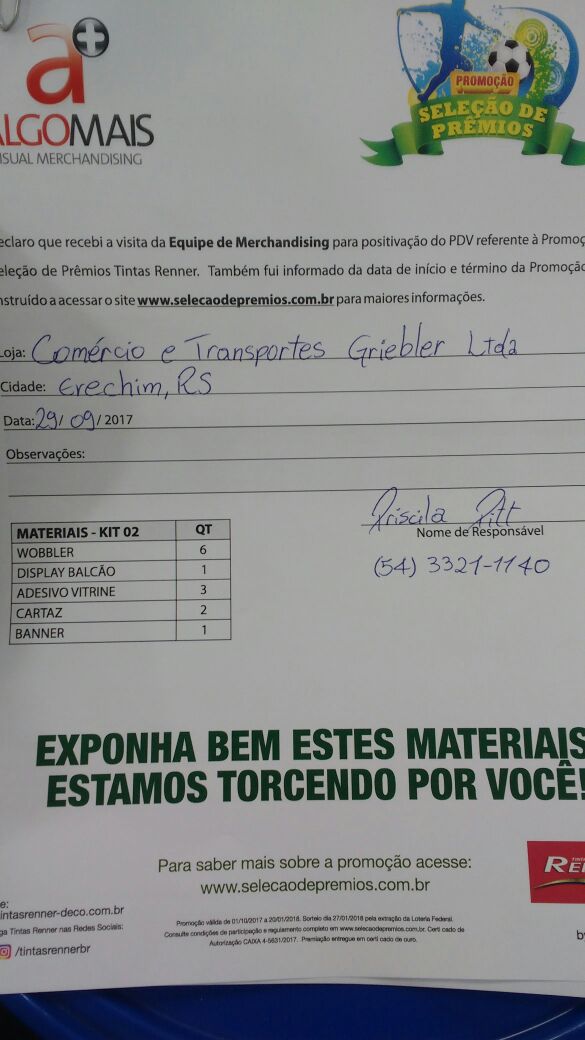 a+
ALGOMAIS
VISUAL MERCHANDISING
PROMOÇÃO
SELEÇÃO DE
PRÊMIOS
eclaro que recebi a visita da Equipe de Merchandising para positivação do PDV referente à Promoç
eleção de Prêmios Tintas Renner. Também fui informado da data de início e término da Promoção
nstruído a acessar o site www.selecaodepremios.com.br para maiores informações.
Loja: Comércio e Transportes Griebler Ltda
Cidade: Erechim, RS
Data: 29/ 09 / 2017
Observações:
Priscila Pitt
Nome de Responsável
(54) 3321-1140
MATERIAIS - KIT 02 QT
WOBBLER 6
DISPLAY BALCÃO 1
ADESIVO VITRINE 3
CARTAZ 2
BANNER 1
EXPONHA BEM ESTES MATERIAIS
ESTAMOS TORCENDO POR VOCÊ!
Para saber mais sobre a promoção acesse:
www.selecaodepremios.com.br
TINTA
RE
e:
intasrenner-deco.com.br
ga Tintas Renner nas Redes Sociais:
/tintasrennerbr
Promoção válida de 01/10/2017 a 20/01/2018. Sorteio dia 27/01/2018 pela extração da Loteria Federal.
Consulte condições de participação e regulamento completo em www.selecaodepremios.com.br. Certi cado de
Autorização CAIXA 4-5631/2017. Premiação entregue em certi cado de ouro.